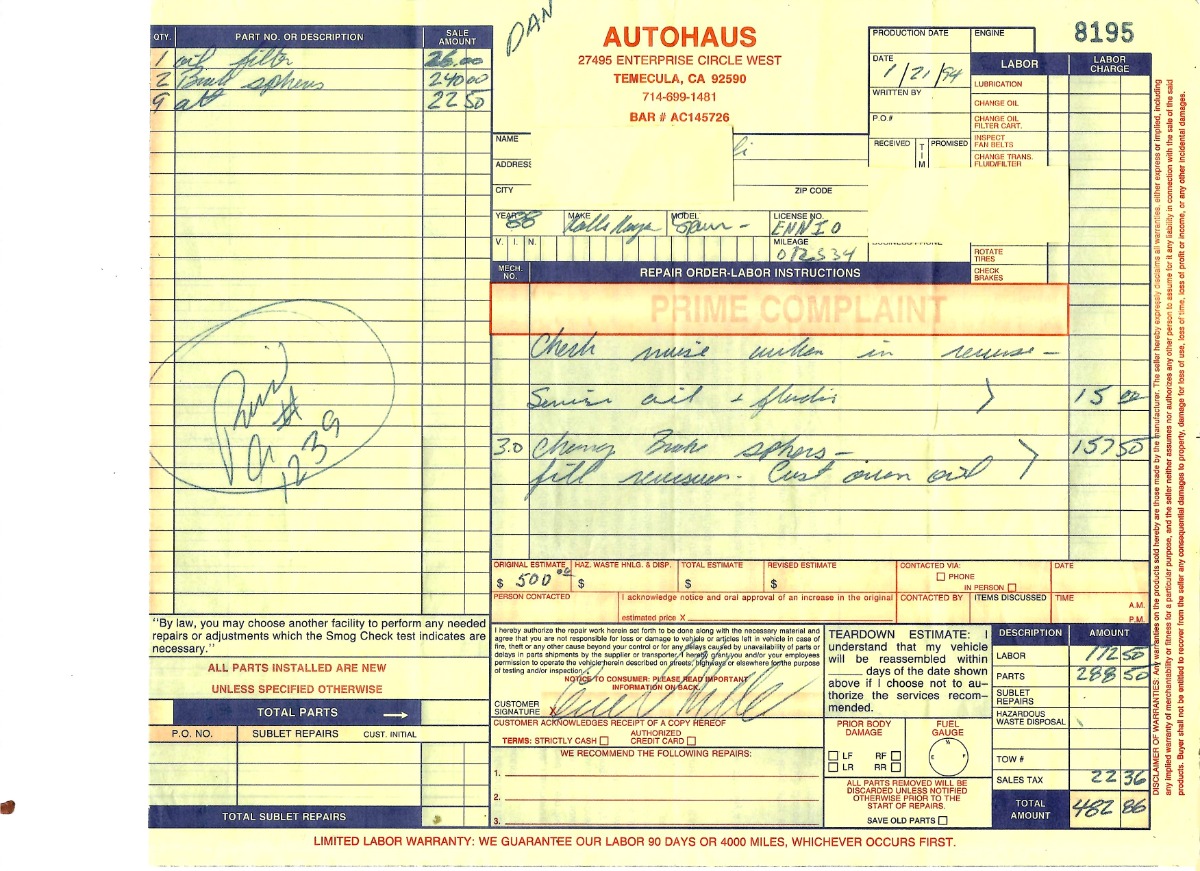 DAN
AUTOHAUS
27495 ENTERPRISE CIRCLE WEST
TEMECULA, CA 92590
714-699-1481
BAR # AC145726
8195
QTY. PART NO. OR DESCRIPTION SALE AMOUNT
1 oil filter 26.00
2 240 00
9 22 50
PRODUCTION DATE
ENGINE
DATE 1/21/94
WRITTEN BY
P.O.#
RECEIVED TIM PROMISED
LABOR LABOR CHARGE
LUBRICATION
CHANGE OIL
CHANGE OIL FILTER CART.
INSPECT FAN BELTS
CHANGE TRANS. FLUID/FILTER
ROTATE TIRES
CHECK BRAKES
NAME
ADDRESS
CITY
ZIP CODE
YEAR 88 MAKE MODEL LICENSE NO. ENNIO
V. I. N. MILEAGE
MECH. NO. REPAIR ORDER-LABOR INSTRUCTIONS
PRIME COMPLAINT
Check noise when in reverse -
Service oil + fluids 15 00
3.0 Change Brake sphers - 157 50
fill - Cust own oil
ORIGINAL ESTIMATE $ 500 00
HAZ. WASTE HNLG. & DISP. $
TOTAL ESTIMATE $
REVISED ESTIMATE $
CONTACTED VIA: PHONE IN PERSON
DATE
PERSON CONTACTED
I acknowledge notice and oral approval of an increase in the original estimated price X
CONTACTED BY
ITEMS DISCUSSED
TIME A.M. P.M.
"By law, you may choose another facility to perform any needed
repairs or adjustments which the Smog Check test indicates are
necessary."
ALL PARTS INSTALLED ARE NEW
UNLESS SPECIFIED OTHERWISE
TOTAL PARTS
P.O. NO. SUBLET REPAIRS CUST. INITIAL
TOTAL SUBLET REPAIRS
I hereby authorize the repair work herein set forth to be done along with the necessary material and
agree that you are not responsible for loss or damage to vehicle or articles left in vehicle in case of
fire, theft or any other cause beyond your control or for any delays caused by unavailability of parts or
delays in parts shipments by the supplier or transporter. I hereby grant you and/or your employees
permission to operate the vehicle herein described on streets, highways or elsewhere for the purpose
of testing and/or inspection.
NOTICE TO CONSUMER: PLEASE READ IMPORTANT
INFORMATION ON BACK.
CUSTOMER SIGNATURE X
CUSTOMER ACKNOWLEDGES RECEIPT OF A COPY HEREOF
TERMS: STRICTLY CASH AUTHORIZED CREDIT CARD
WE RECOMMEND THE FOLLOWING REPAIRS:
1.
2.
3.
TEARDOWN ESTIMATE: I
understand that my vehicle
will be reassembled within
days of the date shown
above if I choose not to au-
thorize the services recom-
mended.
PRIOR BODY DAMAGE
LF RF
LR RR
FUEL GAUGE
E ½ F
ALL PARTS REMOVED WILL BE
DISCARDED UNLESS NOTIFIED
OTHERWISE PRIOR TO THE
START OF REPAIRS.
SAVE OLD PARTS
DESCRIPTION AMOUNT
LABOR 172 50
PARTS 288 50
SUBLET REPAIRS
HAZARDOUS WASTE DISPOSAL
TOW #
SALES TAX 22 36
TOTAL AMOUNT 482 86
DISCLAIMER OF WARRANTIES: Any warranties on the products sold hereby are those made by the manufacturer. The seller hereby expressly disclaims all warranties, either express or implied, including
any implied warranty of merchantability or fitness for a particular purpose, and the seller neither assumes nor authorizes any other person to assume for it any liability in connection with the sale of the said
products. Buyer shall not be entitled to recover from the seller any consequential damages to property, damage for loss of use, loss of time, loss of profit or income, or any other incidental damages.
LIMITED LABOR WARRANTY: WE GUARANTEE OUR LABOR 90 DAYS OR 4000 MILES, WHICHEVER OCCURS FIRST.